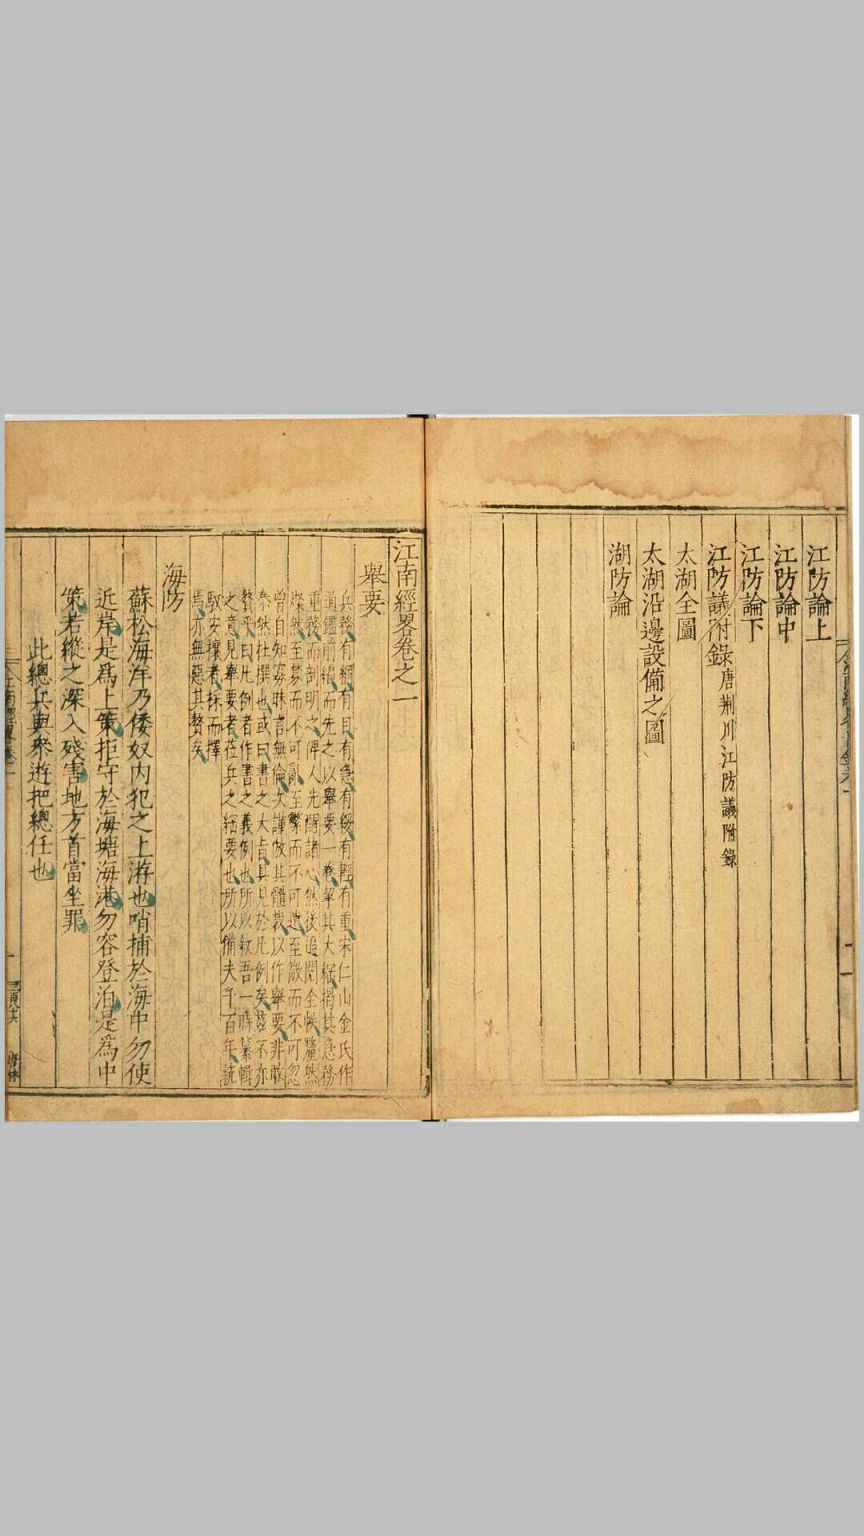 江防論上
江防論中
江防論下
江防議附錄唐荆川江防議附錄
太湖全圖
太湖沿邊設備之圖
湖防論
江南經畧卷之一
舉要
兵務有綱有目有急有緩有輕有重宋仁山金氏作
通鑑前編而先之以舉要一卷挈其大綱揭其急務
重務而剖明之俾人先閱諸心然後追閱全帙釐然
燦然至棼而不可亂至繁而不可遺至微而不可忽
曾自知寡昧言無倫次謹倣其體裁以作舉要非敢
泰然杜撰也或曰書之大旨具見於凡例矣茲不亦
贅乎曰凡例者作書之義例也所以敘吾一時纂輯
之意見舉要者莅兵之綱要也所以備夫千百年統
馭安攘者採而擇
焉亦無惡其贅矣
海防
蘇松海洋乃倭奴內犯之上游也哨捕於海中勿使
近岸是爲上策拒守於海塘海港勿容登泊是爲中
策若縱之深入殘害地方首當坐罪
此總兵與參遊把總任也